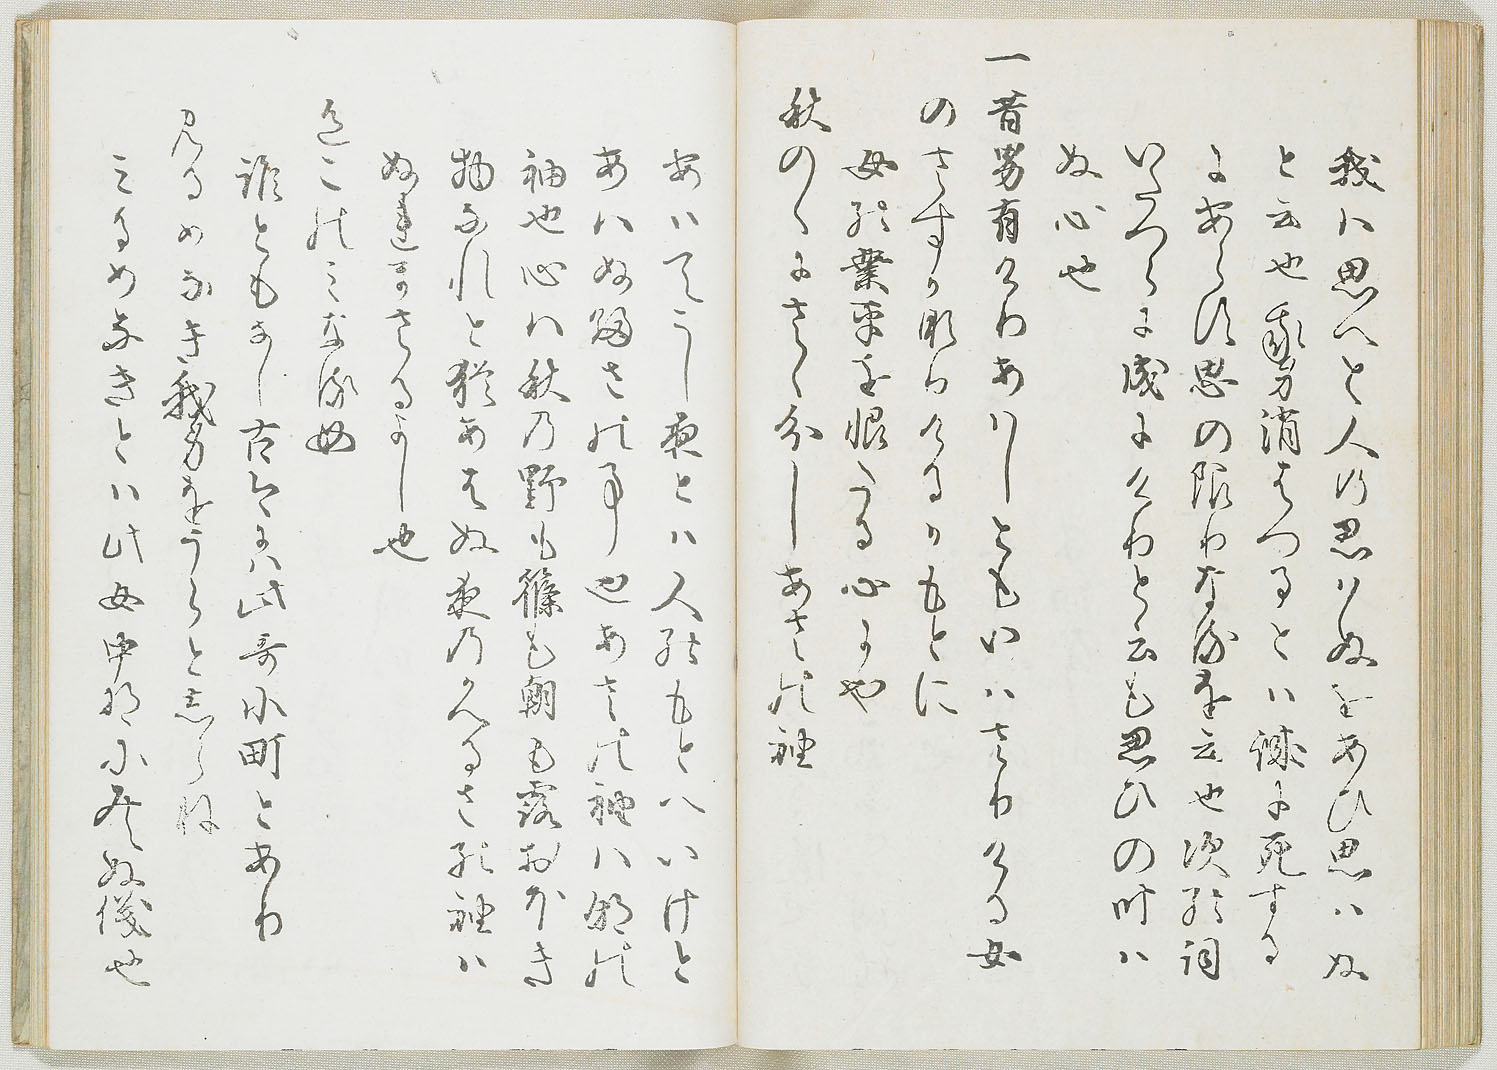 我ハ思へと人の思ハぬをあひ思ハぬ
と云也我身消はつるとハ誠に死する
にあらす思の限りなるを云也次の詞
いたつらに成にけりと云も思ひの叶ハ
ぬ心也
一昔男有けりあハしともいハさりける女
のさすか成りけるかもとに
女の業平を恨たる心にや
秋のゝにさゝ分しあさの袖
あハてこし夜とハ人のもとへいけと
あハぬ帰さの事也あさの袖ハ朝の
袖也心ハ秋の野も篠も朝も露おほき
物なれと猶あはぬ夜のかへるさの袖ハ
ぬれまさるよし也
色このみなる女
誰ともなし古今にハ此哥小町とあり
見るめなき我身をうらとしらねハ
みるめなきとハ此女中将にみえぬ儀也